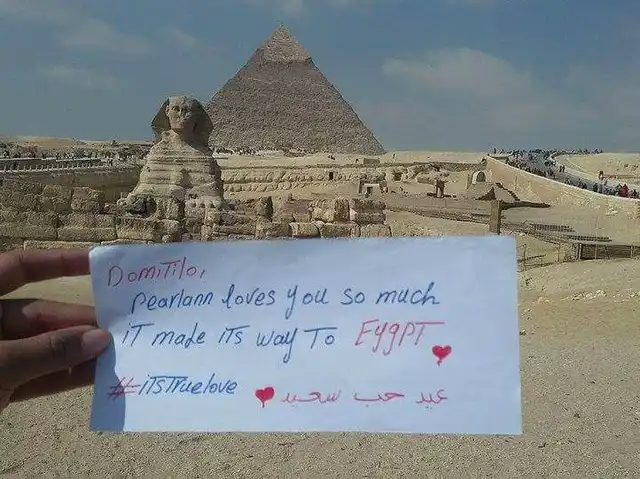 Domitilo,
Pearlann loves you so much
it made its way to Eygpt
#itstruelove عيد حب سعيد